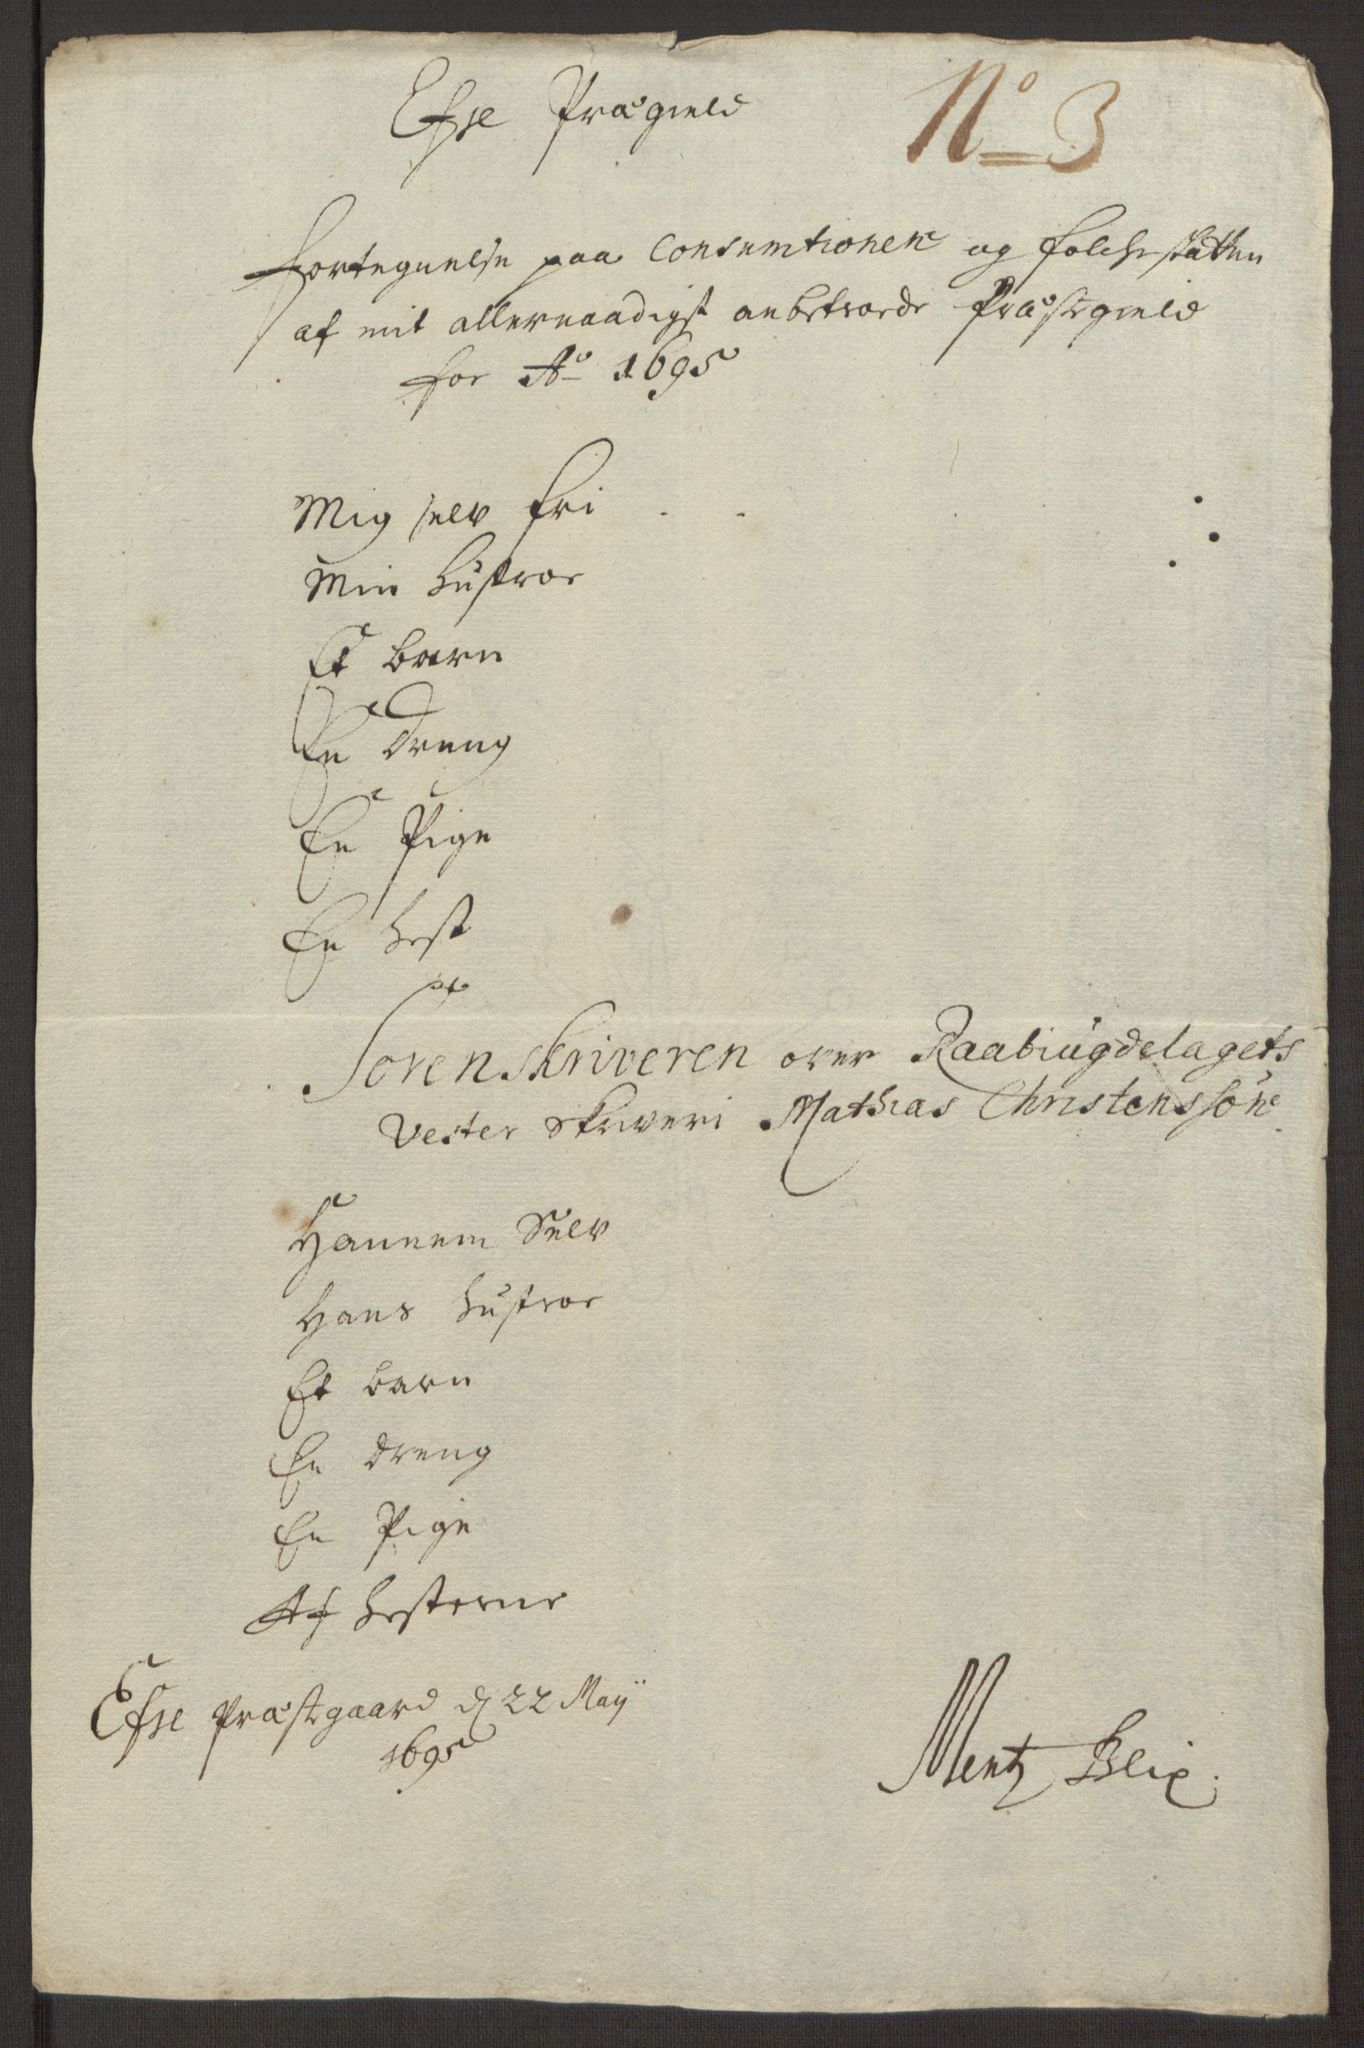 Efje Præ'gield
No 3
Fortegnelse paa Consumtionen og folcheskatten
af mit allernaadigst anbetroede Præstegield
for Ao 1695
Mig selv fri
Min hustroe
Et barn
En dreng
En Pige
En hest
Sorenskriveren over Raabiugdelagets
Vester skriveri Mathias Christenssøn
Hannem Selv
Hans hustroe
Et barn
En dreng
En Pige
Af hesterne
Efje Præstegaard d 22 Maÿ
1695
Mentz Blix